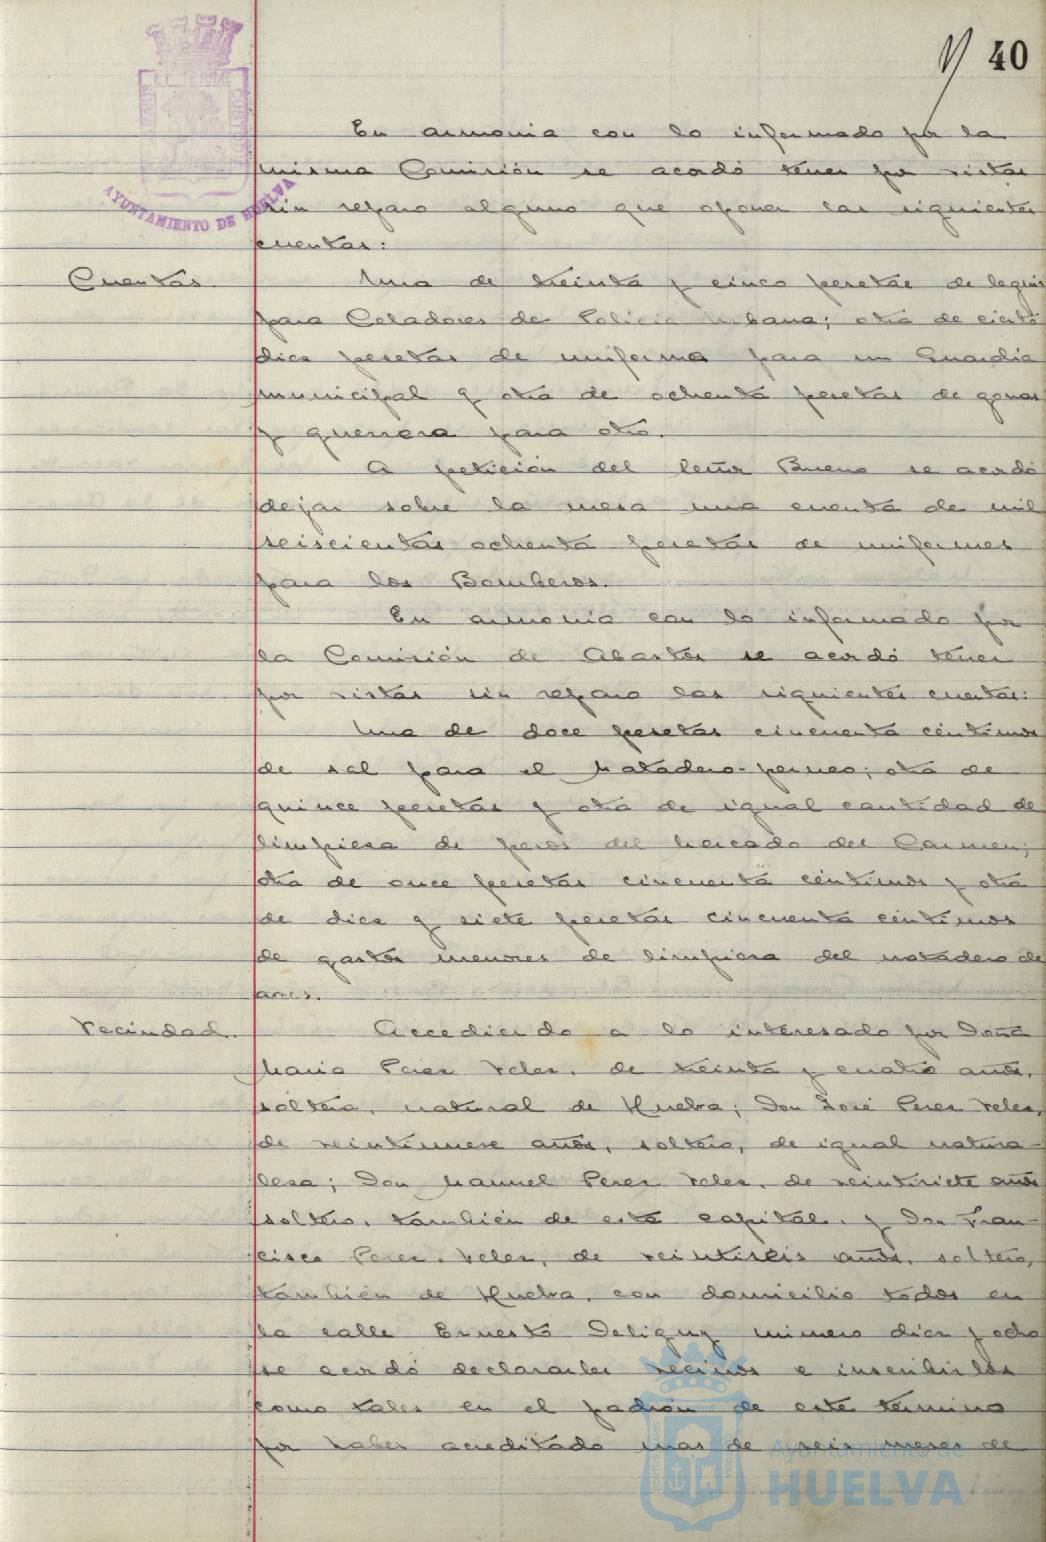 40
En armonia con lo informado por la
misma Comisión se acordó tener por vistas
sin reparo alguno que oponer las siguientes
cuentas:
AYUNTAMIENTO DE HUELVA
Cuentas.
Una de treinta y cinco pesetas de leguis
para Celadores de Policia Urbana; otra de ciento
diez pesetas de uniforme para un Guardia
municipal y otra de ochenta pesetas de gorras
y guerrera para otro.
A petición del Señor Bueno se acordó
dejar sobre la mesa una cuenta de mil
seiscientas ochenta pesetas de uniformes
para los Bomberos.
En armonia con lo informado por
la Comisión de Abastos se acordó tener
por vistas sin reparo las siguientes cuentas:
Una de doce pesetas cincuenta céntimos
de sal para el Matadero; otra de
quince pesetas y otra de igual cantidad de
limpieza de pesos del Mercado del Carmen;
otra de once pesetas cincuenta céntimos y otra
de diez y siete pesetas cincuenta céntimos
de gastos menores de limpieza del matadero de
aves.
Vecindad.
Accediendo a lo interesado por Doña
Maria Perez Velez, de treinta y cuatro años,
soltera, natural de Huelva; Don José Perez Velez,
de veintinueve años, soltero, de igual natura-
leza; Don Manuel Perez Velez, de veintisiete años
soltero, también de esta capital, y Don Fran-
cisco Perez Velez, de veintiseis años, soltero,
también de Huelva, con domicilio todos en
la calle Ernesto Deligny número diez y ocho
se acordó declararles vecinos e inscribirlos
como tales en el padrón de este término
por haber acreditado mas de seis meses de
Ayuntamiento de
HUELVA